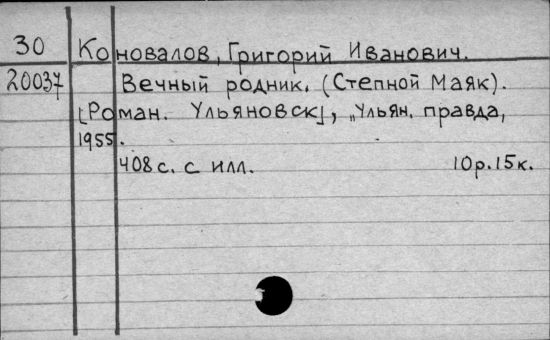 30 Коновалов, Григорий Иванович.
20037 Вечный родник. (Степной Маяк).
[Роман. Ульяновск], „Ульян. правда,
1955.
408 с. с илл. 10р.15к.